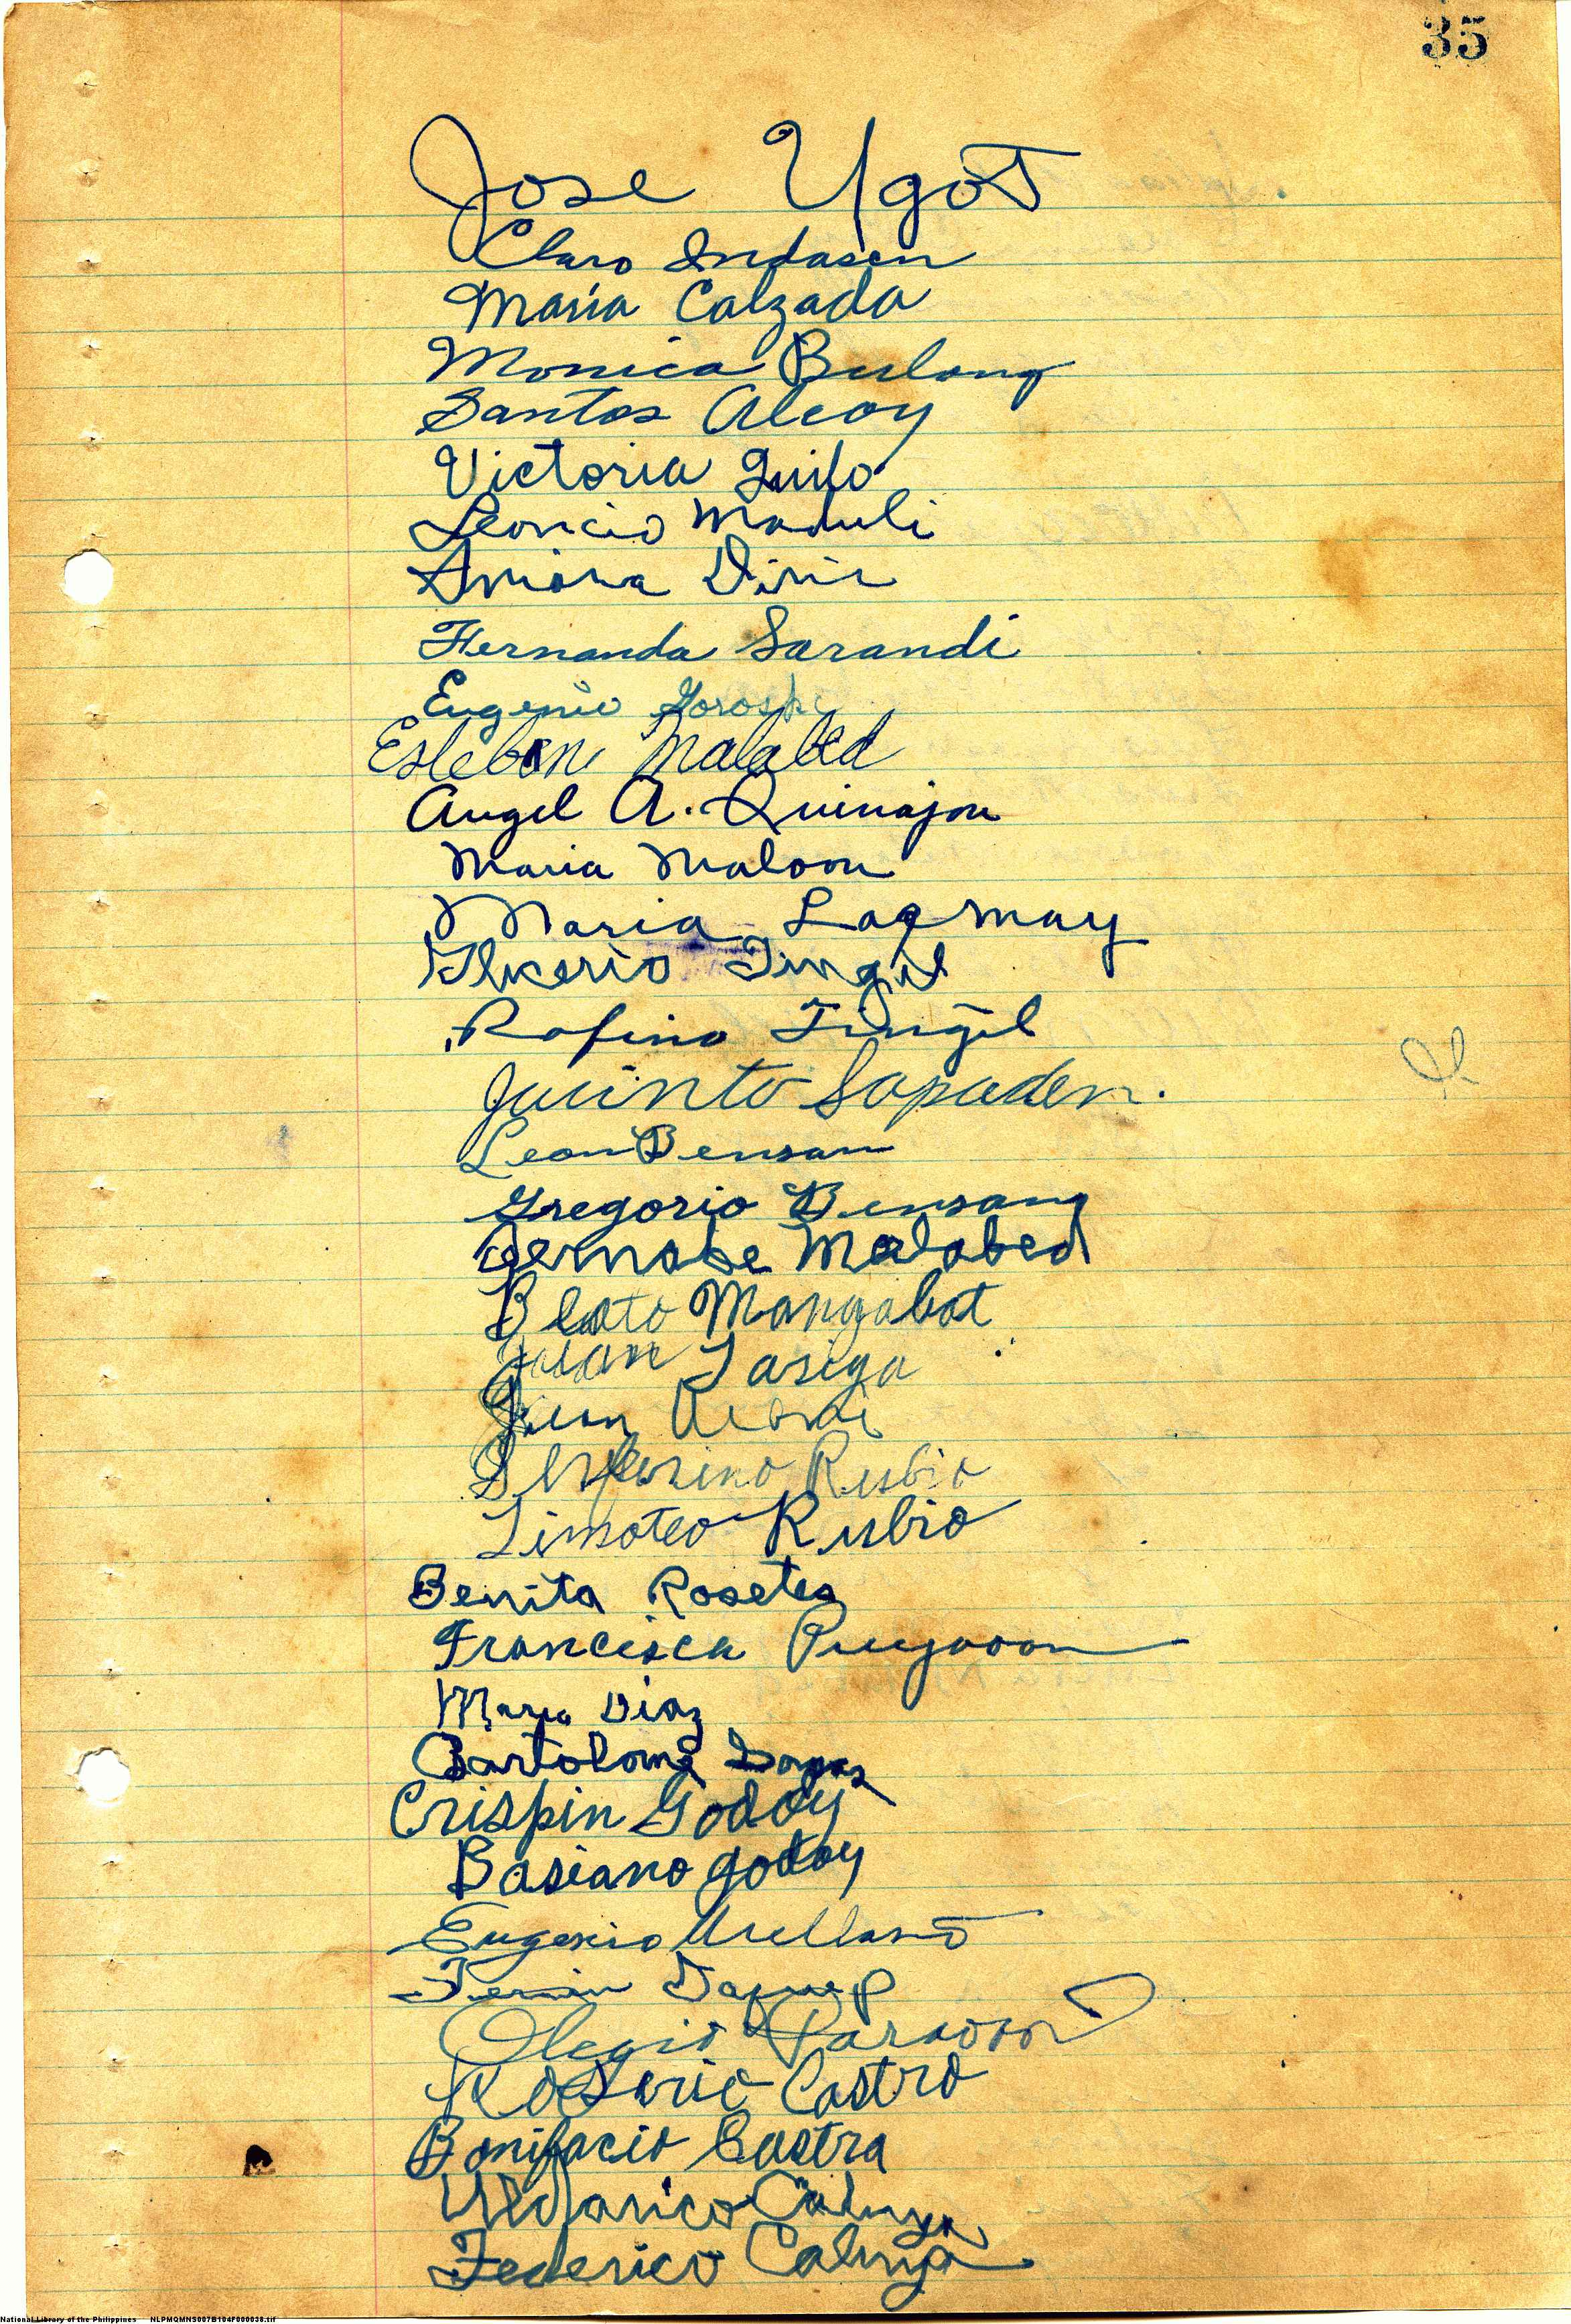 35
Jose Ugot
Claro Indasen
Maria Calzada
Monica Bulong
Santos Alcoy
Victoria
Leoncio Maduli
Fernanda Sarandi
Eugenio Gorospe
Esteban Malabed
Angel A. Quinajon
Maria Maloon
Maria Lagmay
Glicerio Tingil
Rofino Tingil
Jacinto Sapaden.
Leon Bensan
Gregorio Bensang
Bernabe Malabed
Beato Mangabat
Juan Tasiga
Juan
Severino Rusbio
Timoteo Rubio
Benita Rosetes
Francisca
Maria Diaz
Bartolome
Crispin Godoy
Basiano godoy
Eugenio Arellano
Olegio
Rosario Castro
Bonifacio Castra
Uldarico Caluya
Federico Caluya
National Library of the Philippines NLPMQMNS007B104F000038.tif